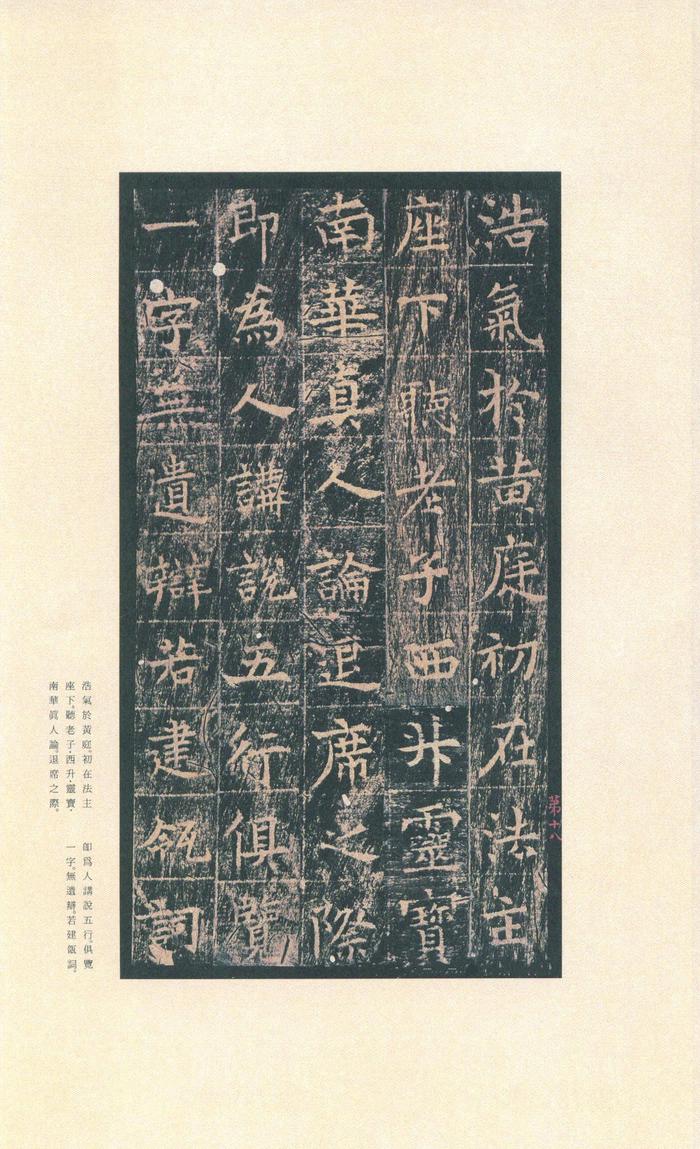 浩氣於黄庭初在法主
座下聴老子西升靈寶
南華真人論退席之際
即為人講說五行俱覽
一字無遺辯若建瓴詞
第十八
浩氣於黃庭。初在法主
座下。聽老子·西升·靈寶·
南華眞人論。退席之際。
卽爲人講說五行。俱覽
一字。無遺辯。若建瓴詞。